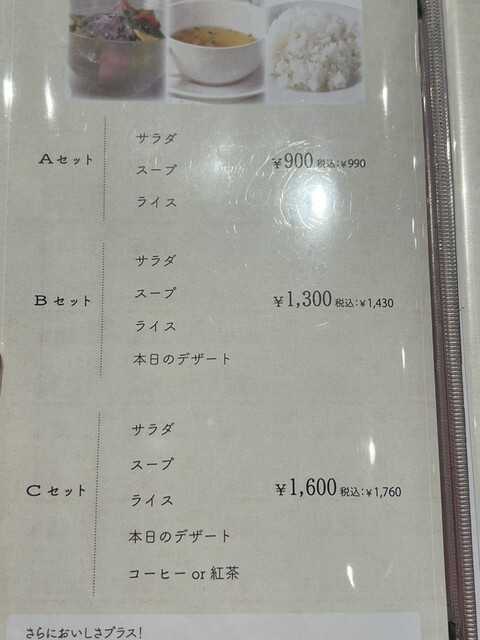 サラダ
Aセット
スープ
¥900 税込:¥990
ライス
サラダ
スープ
Bセット
¥1,300 税込:¥1,430
ライス
本日のデザート
サラダ
スープ
Cセット
¥1,600 税込:¥1,760
ライス
本日のデザート
コーヒー or 紅茶
さらにおいしさプラス!